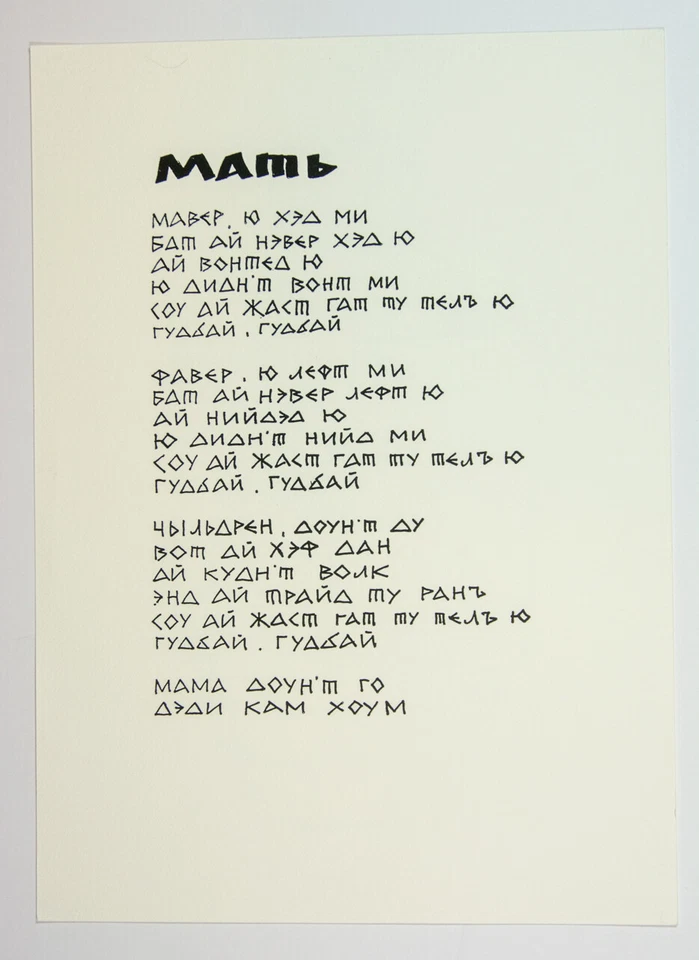 МАТЬ
МАВЕР, Ю ХЭД МИ
БАТ АЙ НЭВЕР ХЭД Ю
АЙ ВОНТЕД Ю
Ю ДИДН'Т ВОНТ МИ
СОУ АЙ ЖАСТ ГАТ ТУ ТЕЛЪ Ю
ГУДБАЙ, ГУДБАЙ
ФАВЕР, Ю ЛЕФТ МИ
БАТ АЙ НЭВЕР ЛЕФТ Ю
АЙ НИЙДЭД Ю
Ю ДИДН'Т НИЙД МИ
СОУ АЙ ЖАСТ ГАТ ТУ ТЕЛЪ Ю
ГУДБАЙ, ГУДБАЙ
ЧЫЛЬДРЕН, ДОУН'Т ДУ
ВОТ АЙ ХЭФ ДАН
АЙ КУДН'Т ВОЛК
ЭНД АЙ ТРАЙД ТУ РАНЪ
СОУ АЙ ЖАСТ ГАТ ТУ ТЕЛЪ Ю
ГУДБАЙ, ГУДБАЙ
МАМА ДОУН'Т ГО
ДЭДИ КАМ ХОУМ